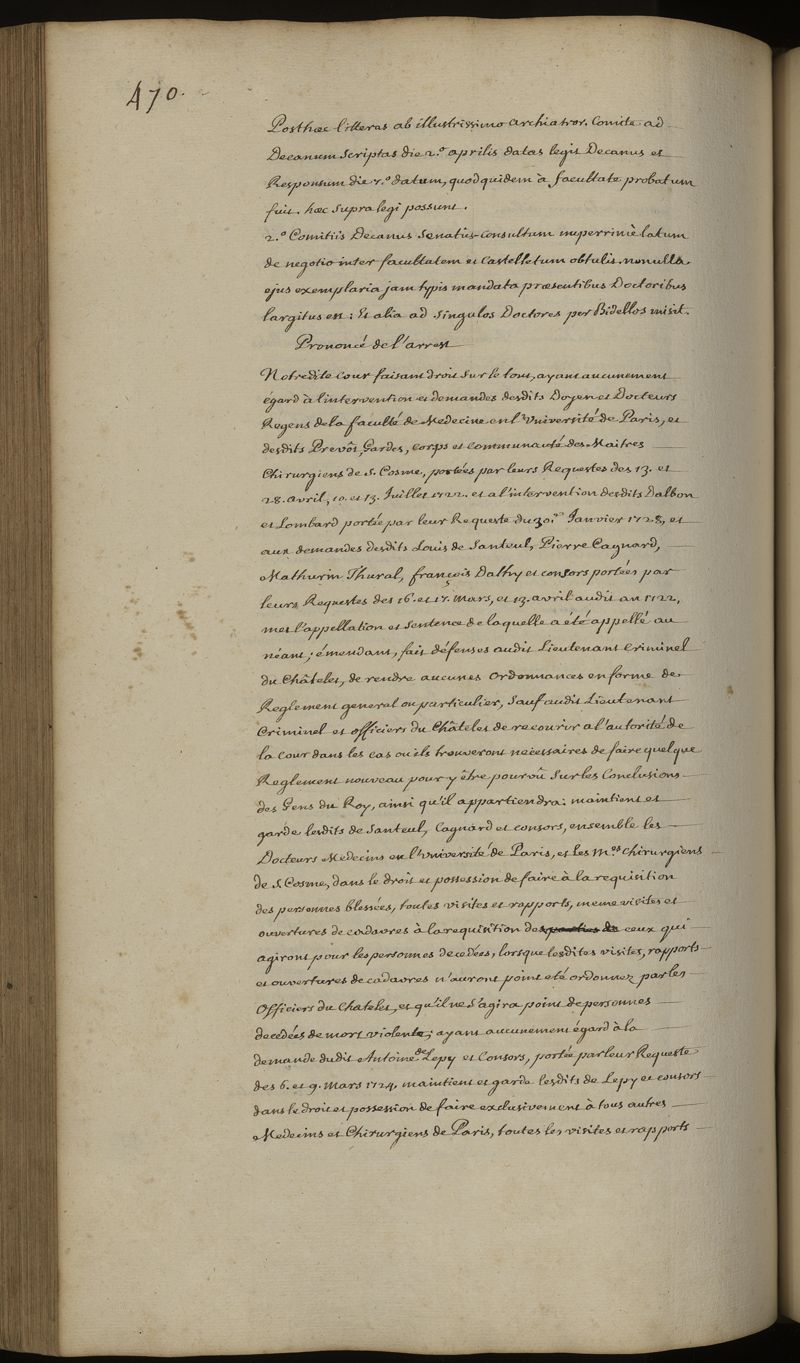 470.
Posthæc litteras ab illustrissimo archiatror. Comite ad
Decanum scriptas die 2.º aprilis datas legit Decanus et
Responsum die 7.º datum, quod quidem à facultate probatum
fuit. hæc supra legi possunt.
2.º Comitiis Decanus Senatûs-consultum nuperrimè latum
de negotio inter facultatem et Castelletum obtulit. nonulla
ejus exemplaria jam typis mandata præsentibus Doctoribus
largitus est: Et alia ad singulos Doctores per Bidellos misit.
Prononcé de l'arrest
Notredite Cour faisant droit sur le tout, ayant aucunement
égard à l'intervention et demandes desdits Doyen et Docteurs
Regens de la faculté de Medecine en l'Université de Paris, et
desdits Prevôt, Gardes, corps et communauté des Maitres
Chirurgiens de S. Cosme, portées par leurs Requestes des 13. et
28. avril, 10. et 13. Juillet 1722. et a l'intervention desdits Dalbon
et Lombard portée par leur Requeste du 30. Janvier 1728, et
aux demandes desdits Louis de Santeul, Pierre Cagnard,
Mathurin Thural, françois Dathy et consors portées par
leurs Requestes des 16. et 17. Mars, et 13. avril audit an 1722,
met l'appellation et sentence de laquelle a été appellé au
néant; émendant, fait défenses audit Lieutenant Criminel
du Châtelet, de rendre aucunes ordonnances en forme de
Reglement general ou particulier, sauf audit Lieutenant
Criminel et officiers du Châtelet de recourir a l'autorité de
la Cour dans les cas ou ils trouveront necessaires de faire quelque
Reglement nouveau pour y être pourvû sur les Conclusions
des Gens du Roy, ainsi qu'il appartiendra; maintient et
garde lesdits de Santeul, Cagnard et consors, ensemble les
Docteurs Medecins en l'Université de Paris, et les M.es Chirurgiens
de S. Cosme, dans le droit et possession de faire à la requisition
des personnes blessées, toutes visites et rapports, meme visites et
ouvertures de cadavres à la requisition des parties de ceux qui
agiront pour les personnes decedées, lorsque lesdites visites, rapports
et ouvertures de cadavres n'auront point eté ordonnez par les
Officiers du Chatelet, et qu'il ne s'agira point de personnes
decedées de mort violente; ayant aucunement égard à la
demande dudit Antoine de Lepy et Consors, portée par leur Requeste
des 6. et 9. Mars 1724, maintient et garde lesdits de Lepy et consors
dans le droit et possession de faire exclusivement à tous autres
Medecins et Chirurgiens de Paris, toutes les visites et rapports